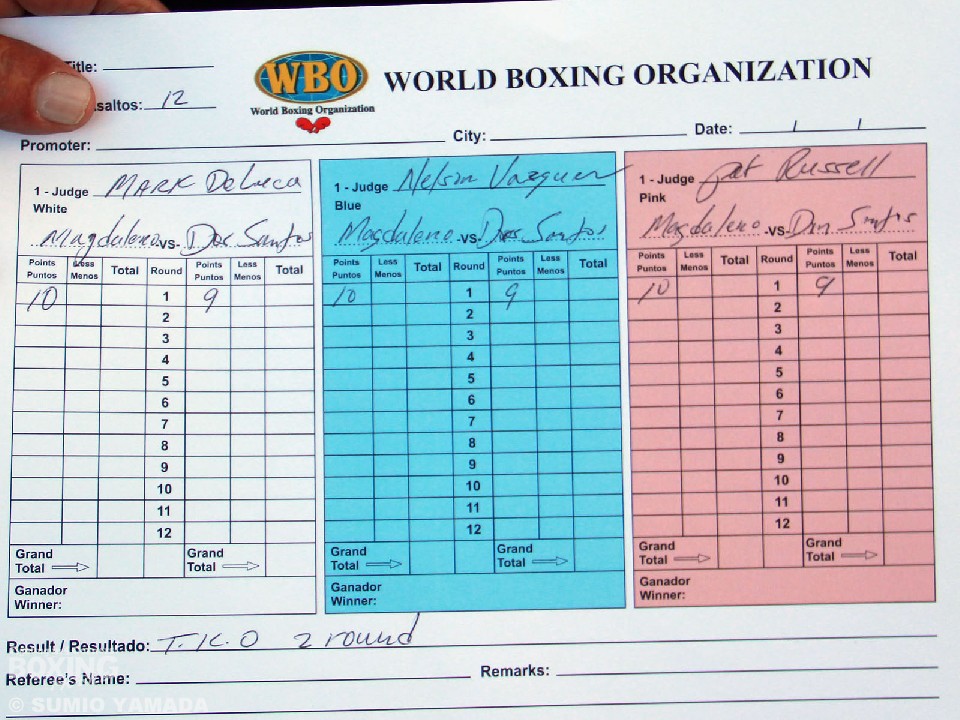 Title:
WBO
World Boxing Organization
WORLD BOXING ORGANIZATION
saltos: 12
Promoter: City: Date: / /
1 - Judge MARK DeLuca
White
Magdaleno -vs- Dos Santos
Points Puntos Less Menos Total Round Points Puntos Less Menos Total
10 1 9
2
3
4
5
6
7
8
9
10
11
12
Grand Total Grand Total
Ganador
Winner:
1 - Judge Nelson Vazquez
Blue
Magdaleno -vs- Dos Santos
Points Puntos Less Menos Total Round Points Puntos Less Menos Total
10 1 9
2
3
4
5
6
7
8
9
10
11
12
Grand Total Grand Total
Ganador
Winner:
1 - Judge Pat Russell
Pink
Magdaleno -vs- Dos Santos
Points Puntos Less Menos Total Round Points Puntos Less Menos Total
10 1 9
2
3
4
5
6
7
8
9
10
11
12
Grand Total Grand Total
Ganador
Winner:
Result / Resultado: T.K.O 2 round
Referee's Name: Remarks:
BOXING
© SUMIO YAMADA